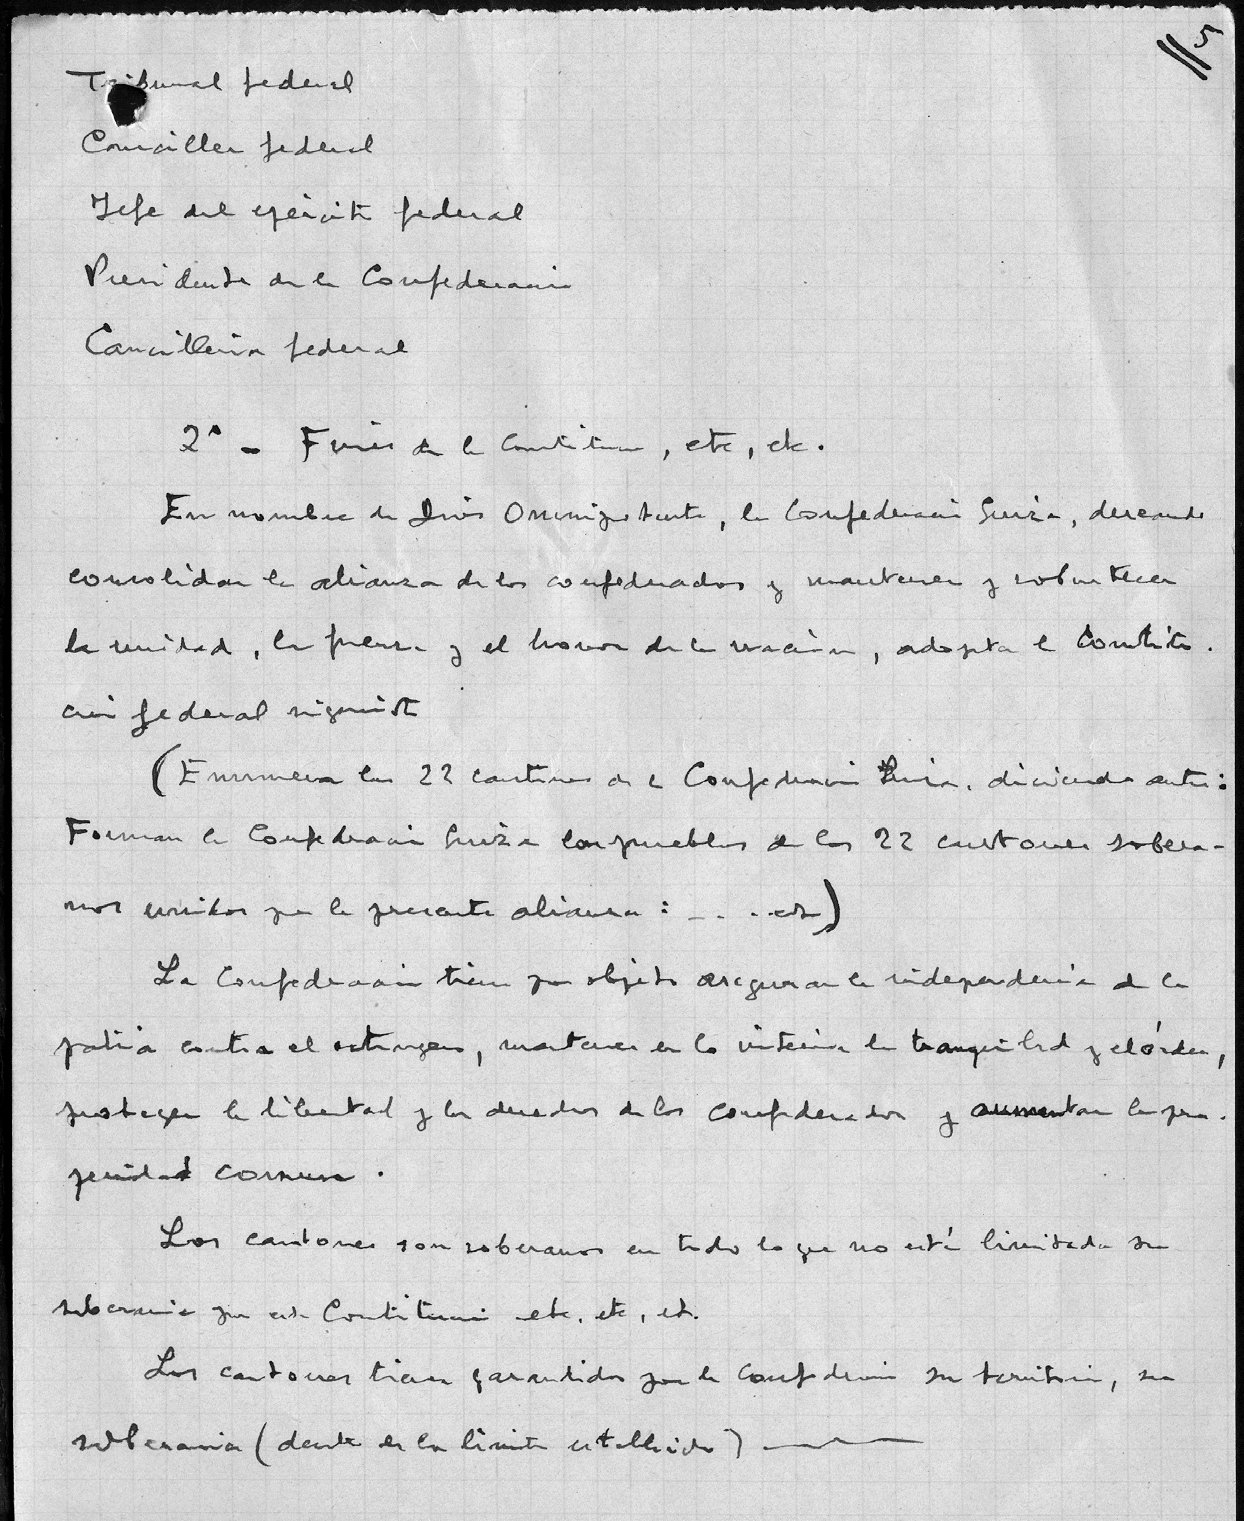 5
Tribunal federal
Canciller federal
Jefe del ejército federal
Presidente de la Confederación
Cancilleria federal
2º - Fines de la Constitucion, etc, etc.
En nombre de Dios Omnipotente, la Confederación Suiza, deseando
consolidar la alianza de los confederados y mantener y robustecer
la unidad, la fuerza y el honor de la nación, adopta la Constitu-
ción federal siguiente
(Enumera los 22 cantones de la Confederación Suiza, diciendo antes:
Forman la Confederación Suiza los pueblos de los 22 cantones sobera-
nos unidos por la presente alianza: - . . . etc)
La Confederación tiene por objeto asegurar la independencia de la
patria contra el extrangero, mantener en lo interior la tranquilidad y el órden,
proteger la libertad y los derechos de los confederados y aumentar la pros-
peridad comun.
Los cantones son soberanos en todo lo que no está limitada su
soberania por esta Constitucion etc, etc, etc.
Los cantones tienen garantidos por la Confederación su territorio, su
soberania (dentro de los limites establecidos)